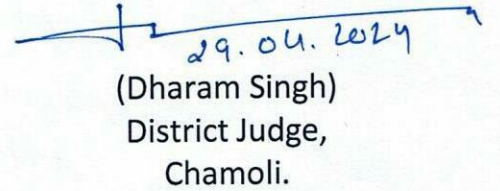 29.04.2024
(Dharam Singh)
District Judge,
Chamoli.